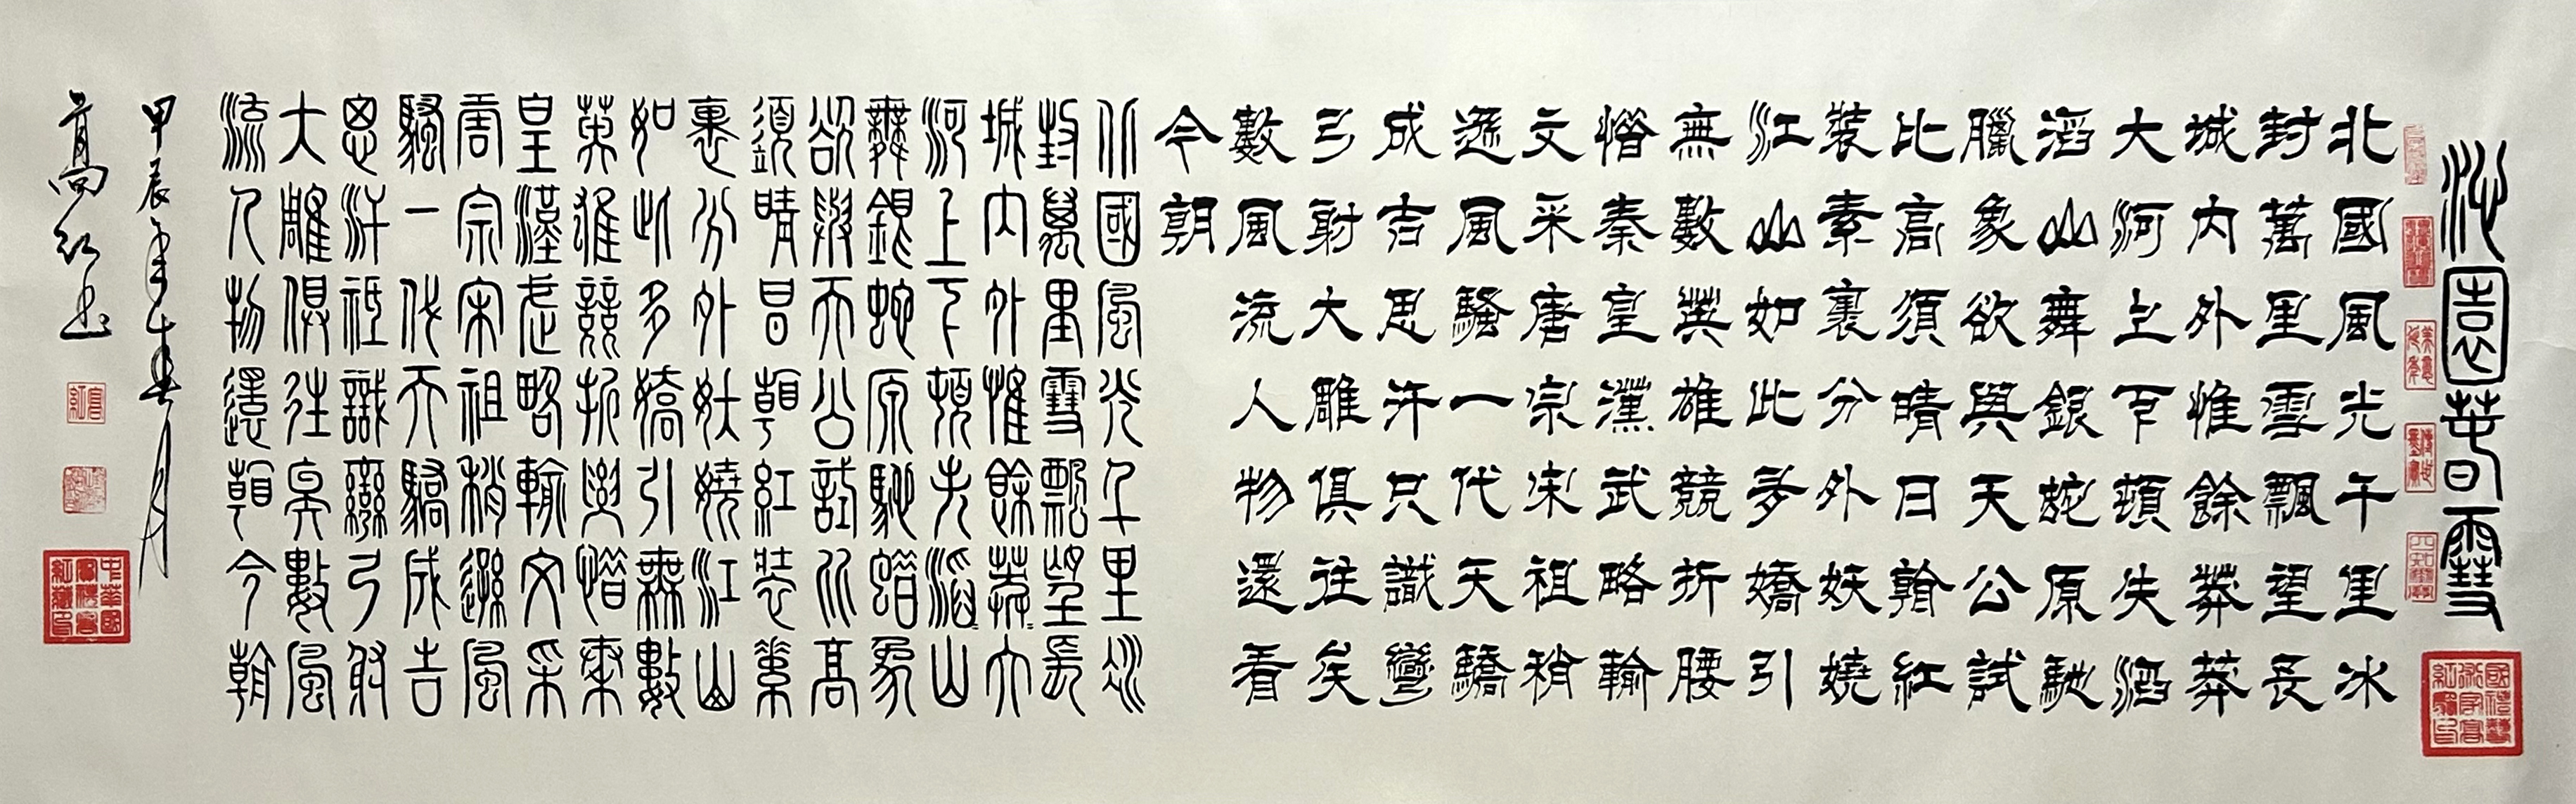 沁園春雪
北國風光千里冰
封萬里雪飄望長
城內外惟餘莽莽
大河上下頓失滔
滔山舞銀蛇原馳
臘象欲與天公試
比高須晴日看紅
裝素裹分外妖嬈
江山如此多嬌引
無數英雄競折腰
惜秦皇漢武略輸
文采唐宗宋祖稍
遜風騷一代天驕
成吉思汗只識彎
弓射大雕俱往矣
數風流人物還看
今朝
北國風光千里冰
封萬里雪飄望長
城內外惟餘莽〻大
河上下頓失滔〻山
舞銀蛇原馳蠟象
欲與天公試比高
須晴日看紅裝素
裹分外妖嬈江山
如此多嬌引無數
英雄競折腰惜秦
皇漢武略輸文采
唐宗宋祖稍遜風
騷一代天驕成吉
思汗祇識彎弓射
大雕俱往矣數風
流人物還看今朝
甲辰年春月
高紅書
高紅